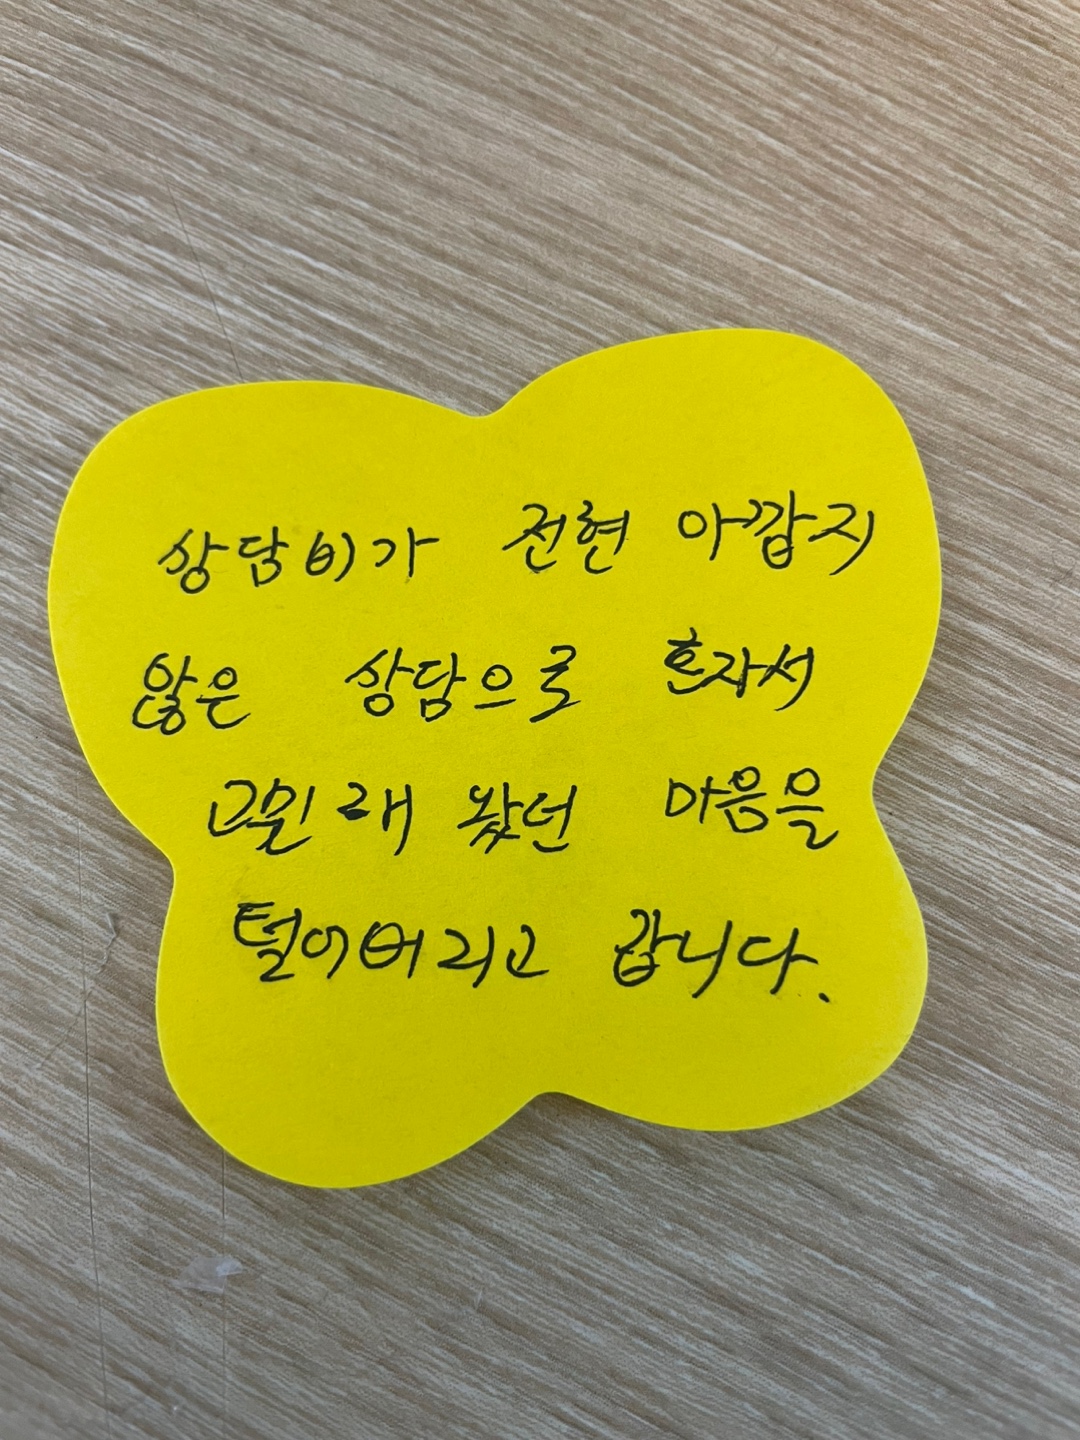 상담비가 전현 아깝지
않은 상담으로 혼자서
고민래 왔던 마음을
털어버리고 갑니다.